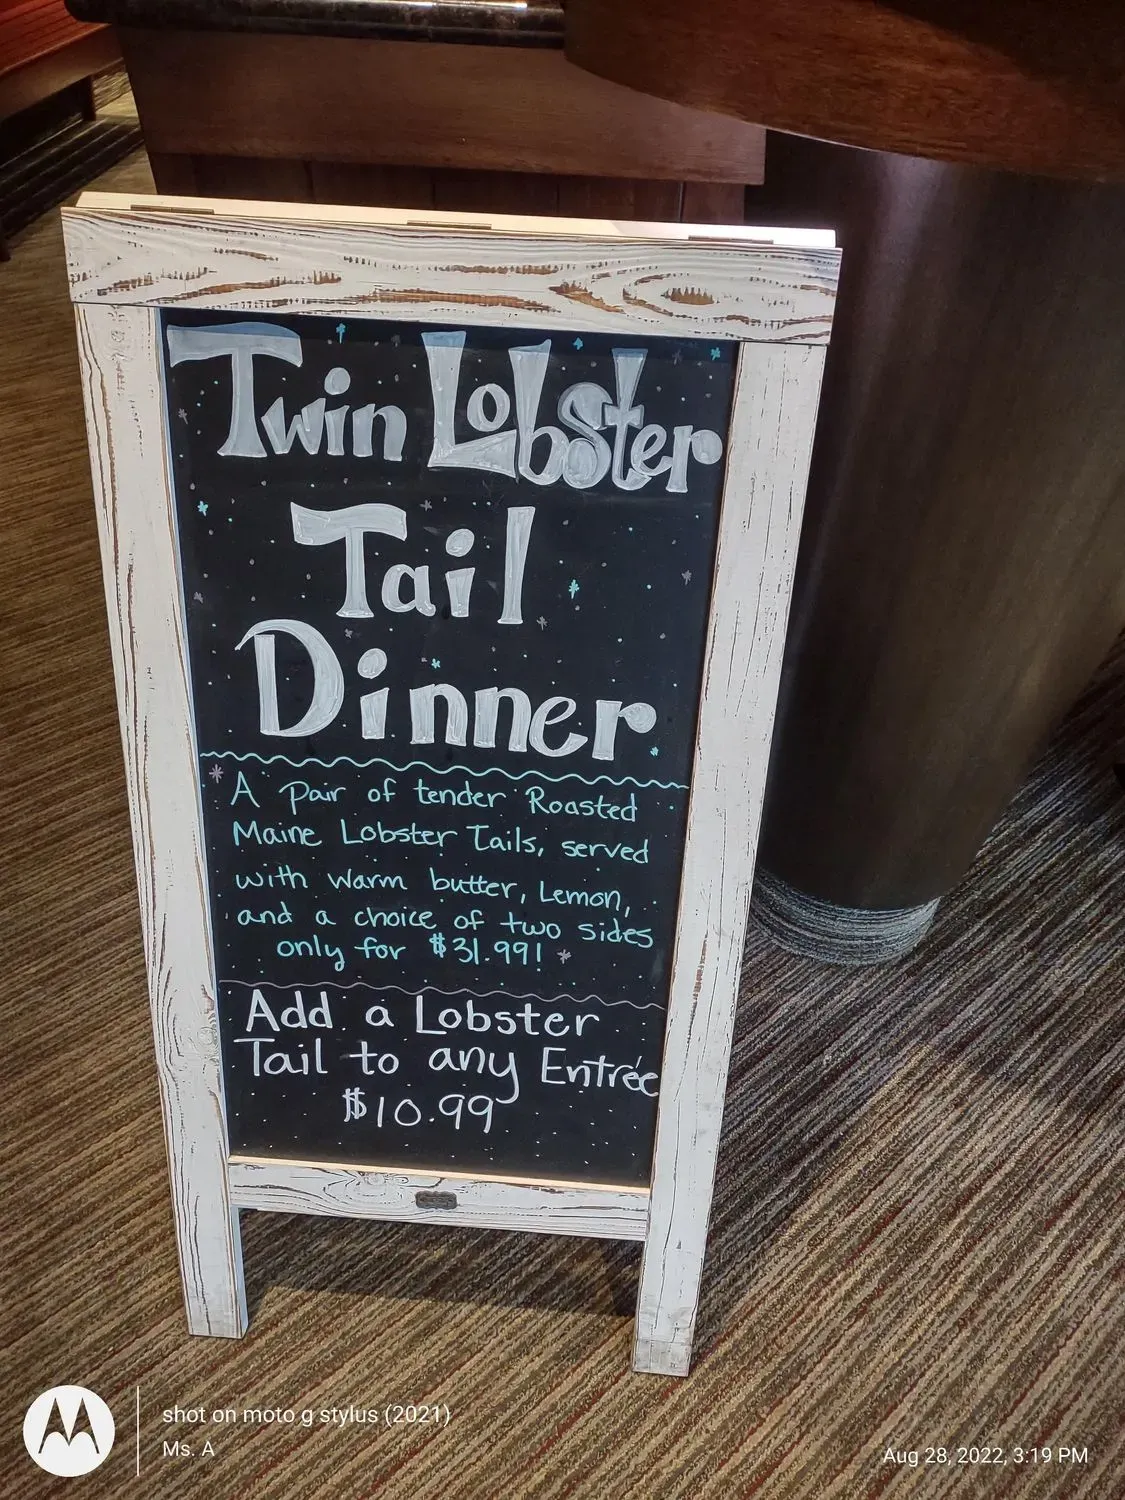 Twin Lobster
Tail
Dinner
A pair of tender Roasted
Maine Lobster Tails, served
with warm butter, Lemon,
and a choice of two sides
only for $31.99!
Add a Lobster
Tail to any Entrée
$10.99
shot on moto g stylus (2021)
Ms. A
Aug 28, 2022, 3:19 PM